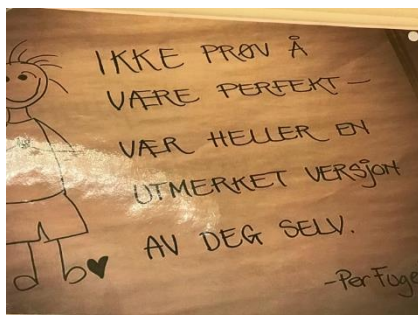 IKKE PRØV Å
VÆRE PERFEKT—
VÆR HELLER EN
UTMERKET VERSJON
AV DEG SELV.
-Per Fuge